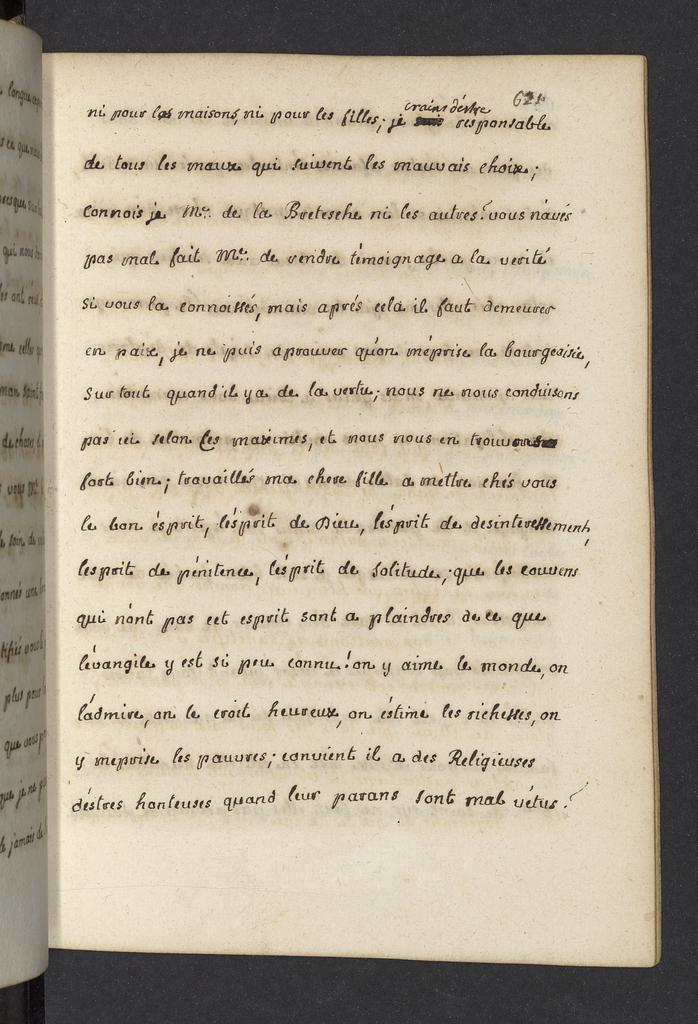 621
ni pour les maisons, ni pour les filles; je crains déstre responsable
de tous les maux qui suivent les mauvais choix;
connois je Me. de la Bretesche ni les autres? vous n'avés
pas mal fait Me. de rendre témoignage a la verité
si vous la connoissés, mais aprés cela il faut demeurer
en paix, je ne puis aprouver qu'on méprise la bourgeoisie,
sur tout quand il y a de la vertu; nous ne nous conduisons
pas ici selon ces maximes, et nous nous en trouvons
fort bien; travaillés ma chere fille a mettre chés vous
le bon ésprit, lésprit de Dieu, lésprit de desinteressement,
lesprit de pénitence, lésprit de solitude; que les couvens
qui n'ont pas cet esprit sont a plaindres de ce que
lévangile y est si peu connu! on y aime le monde, on
l'admire, on le croit heureux, on éstime les richesses, on
y meprise les pauvres; convient il a des Religieuses
déstres honteuses quand leur parans sont mal vétus?